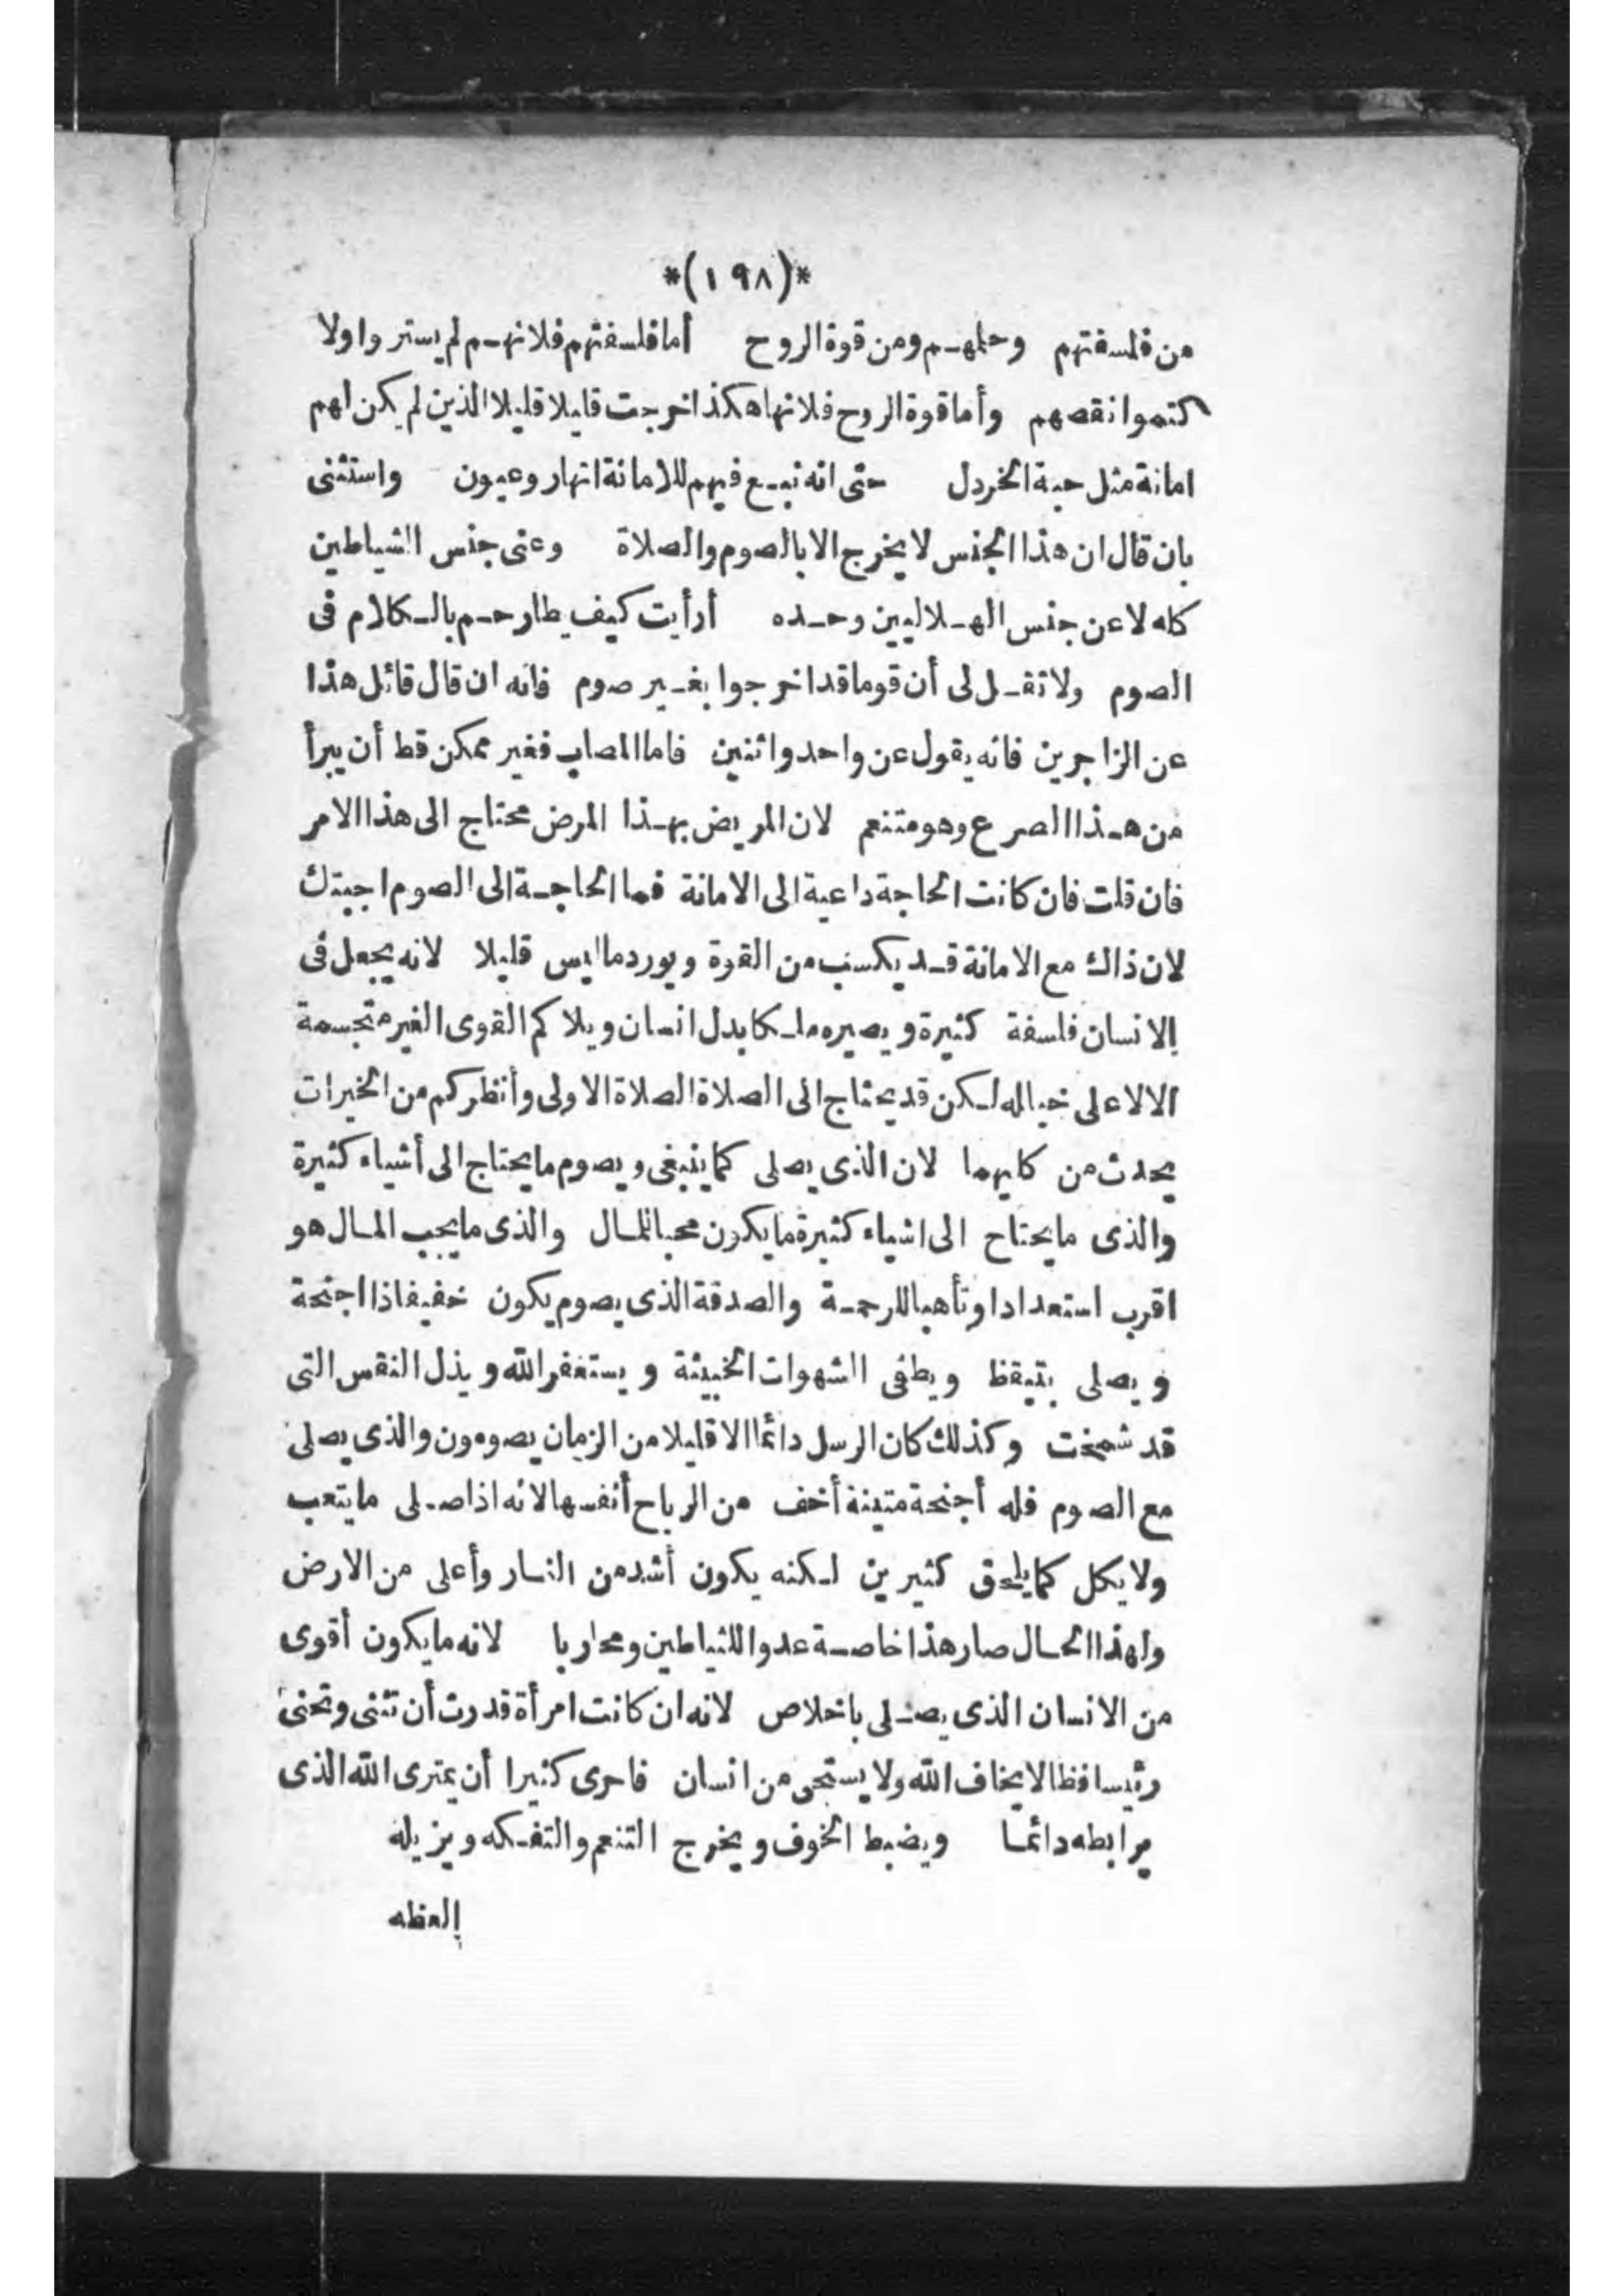 *(١٩٨)*
من فلسفتهم وحلمهم ومن قوة الروح أما فلسفتهم فلانهم لم يستروا ولا
كتموا نقصهم وأما قوة الروح فلانها هكذا خرجت قليلا قليلا الذين لم يكن لهم
امانة مثل حبة الخردل حتى انه نبع فيهم للامانة انهار وعيون واستثنى
بان قال ان هذا الجنس لا يخرج الا بالصوم والصلاة وعنى جنس الشياطين
كله لا عن جنس الهلاليين وحده أرأيت كيف يطارحهم بالكلام فى
الصوم ولا تقل لى أن قوما قد اخرجوا بغير صوم فانه ان قال قائل هذا
عن الزاجرين فانه يقول عن واحد واثنين فاما المصاب فغير ممكن قط أن يبرأ
من هذا الصرع وهو متنعم لان المريض بهذا المرض محتاج الى هذا الامر
فان قلت فان كانت الحاجة داعية الى الامانة فما الحاجة الى الصوم اجبتك
لان ذاك مع الامانة قد يكسب من القوة ويورد ما ليس قليلا لانه يجعل فى
الانسان فلسفة كثيرة ويصيره ملكا بدل انسان ويلاكم القوى الغير متجسمة
الا لا على خياله لكن قد يحتاج الى الصلاة الصلاة الاولى وأنظر كم من الخيرات
يحدث من كليهما لان الذى يصلى كما ينبغى ويصوم ما يحتاج الى أشياء كثيرة
والذى ما يحتاج الى اشياء كثيرة ما يكون محبا للمال والذى ما يحب المال هو
اقرب استعدادا وتأهبا للرحمة والصدقة الذى يصوم يكون خفيفا ذا اجنحة
ويصلى بتيقظ ويطفى الشهوات الخبيثة ويستغفر الله ويذل النفس التى
قد شمخت وكذلك كان الرسل دائما الا قليلا من الزمان يصومون والذى يصلى
مع الصوم فله أجنحة متينة أخف من الرياح أنفسها لانه اذا صلى ما يتعب
ولا يكل كما يلحق كثيرين لكنه يكون أشد من النار وأعلى من الارض
ولهذا الحال صار هذا خاصة عدوا للشياطين ومحاربا لانه ما يكون أقوى
من الانسان الذى يصلى باخلاص لانه ان كانت امرأة قدرت أن تثنى وتحنى
رئيسا فظا لا يخاف الله ولا يستحى من انسان فاحرى كثيرا أن يمترى الله الذى
يرابطه دائما ويضبط الخوف ويخرج التنعم والتفكه ويزيله
العظه